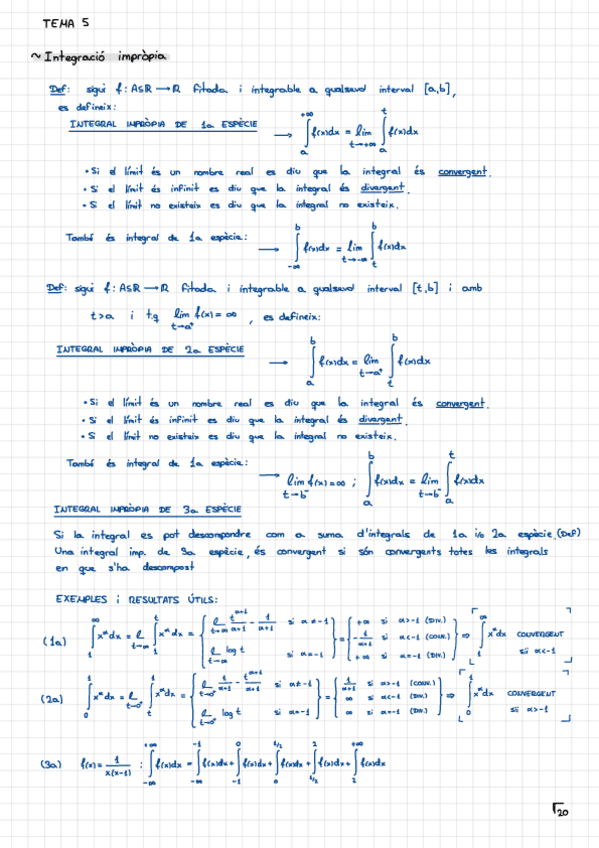 TEMA 5
~ Integració impròpia
Def: sigui f: A⊆ℝ → ℝ fitada i integrable a qualsevol interval [a,b],
es defineix:
INTEGRAL IMPRÒPIA DE 1a ESPÈCIE → ∫_a^{+∞} f(x)dx = lim_{t→+∞} ∫_a^t f(x)dx
• Si el límit és un nombre real es diu que la integral és convergent.
• Si el límit és infinit es diu que la integral és divergent.
• Si el límit no existeix es diu que la integral no existeix.
També és integral de 1a espècie: → ∫_{-∞}^b f(x)dx = lim_{t→-∞} ∫_t^b f(x)dx
Def: sigui f: A⊆ℝ → ℝ fitada i integrable a qualsevol interval [t,b] i amb
t>a i t.q lim_{t→a⁺} f(x) = ∞, es defineix:
INTEGRAL IMPRÒPIA DE 2a ESPÈCIE → ∫_a^b f(x)dx = lim_{t→a⁺} ∫_t^b f(x)dx
• Si el límit és un nombre real es diu que la integral és convergent.
• Si el límit és infinit es diu que la integral és divergent.
• Si el límit no existeix es diu que la integral no existeix.
També és integral de 1a espècie: → lim_{t→b⁻} f(x) = ∞ ; ∫_a^b f(x)dx = lim_{t→b⁻} ∫_a^t f(x)dx
INTEGRAL IMPRÒPIA DE 3a ESPÈCIE
Si la integral es pot descompondre com a suma d'integrals de 1a i/o 2a espècie. (DEF)
Una integral imp. de 3a espècie, és convergent si són convergents totes les integrals
en que s'ha descompost
EXEMPLES i RESULTATS ÚTILS:
(1a) ∫_1^∞ x^α dx = l_{t→∞} ∫_1^t x^α dx = { l_{t→∞} t^{α+1}/(α+1) - 1/(α+1) si α≠-1 ; l_{t→∞} log t si α=-1 } = { +∞ si α>-1 (DIV.) ; -1/(α+1) si α<-1 (CONV.) ; +∞ si α=-1 (DIV.) } ⇒ ∫_1^∞ x^α dx CONVERGENT sii α<-1
(2a) ∫_0^1 x^α dx = l_{t→0⁺} ∫_t^1 x^α dx = { l_{t→0⁺} 1/(α+1) - t^{α+1}/(α+1) si α≠-1 ; l_{t→0⁺} log t si α=-1 } = { 1/(α+1) si α>-1 (CONV.) ; ∞ si α<-1 (DIV.) ; ∞ si α=-1 (DIV.) } ⇒ ∫_0^1 x^α dx CONVERGENT sii α>-1
(3a) f(x) = 1/(x(x-1)) : ∫_{-∞}^{+∞} f(x)dx = ∫_{-∞}^{-1} f(x)dx + ∫_{-1}^0 f(x)dx + ∫_0^{1/2} f(x)dx + ∫_{1/2}^2 f(x)dx + ∫_2^{+∞} f(x)dx
20